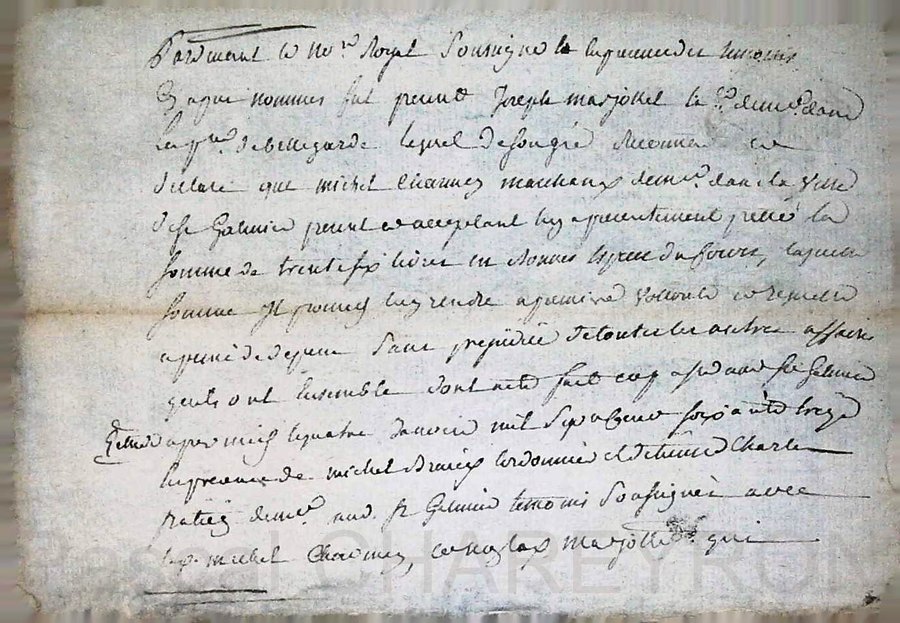 Pardevant le No.re Royal Soussigné & en presence des temoins
Cy apres nommes fut present Joseph marjollet le dem.t dans
la p.sse de bellegarde lequel de son gré Reconnu et
declare que michel Charmey marchand dem.t dans la ville
de st Galmier present et acceptant luy a presentement pretté la
somme de trente six livres en bonnes Especes du Cours, laquelle
somme Il promet luy rendre a premiere volonté et requette
a peine de depens Sans prejudice de toutes les autres affaires
quils ont Ensemble dont acte fait aud st Galmier
apres midi le quatre Janvier mil Sept Cent soixante treize
En presence de michel cordonnier et d'Etienne Charles
dem.t aud. st Galmier temoins Soussignés avec
led. michel Charmey, et non led. marjollet qui
Pascal CHAREYRON